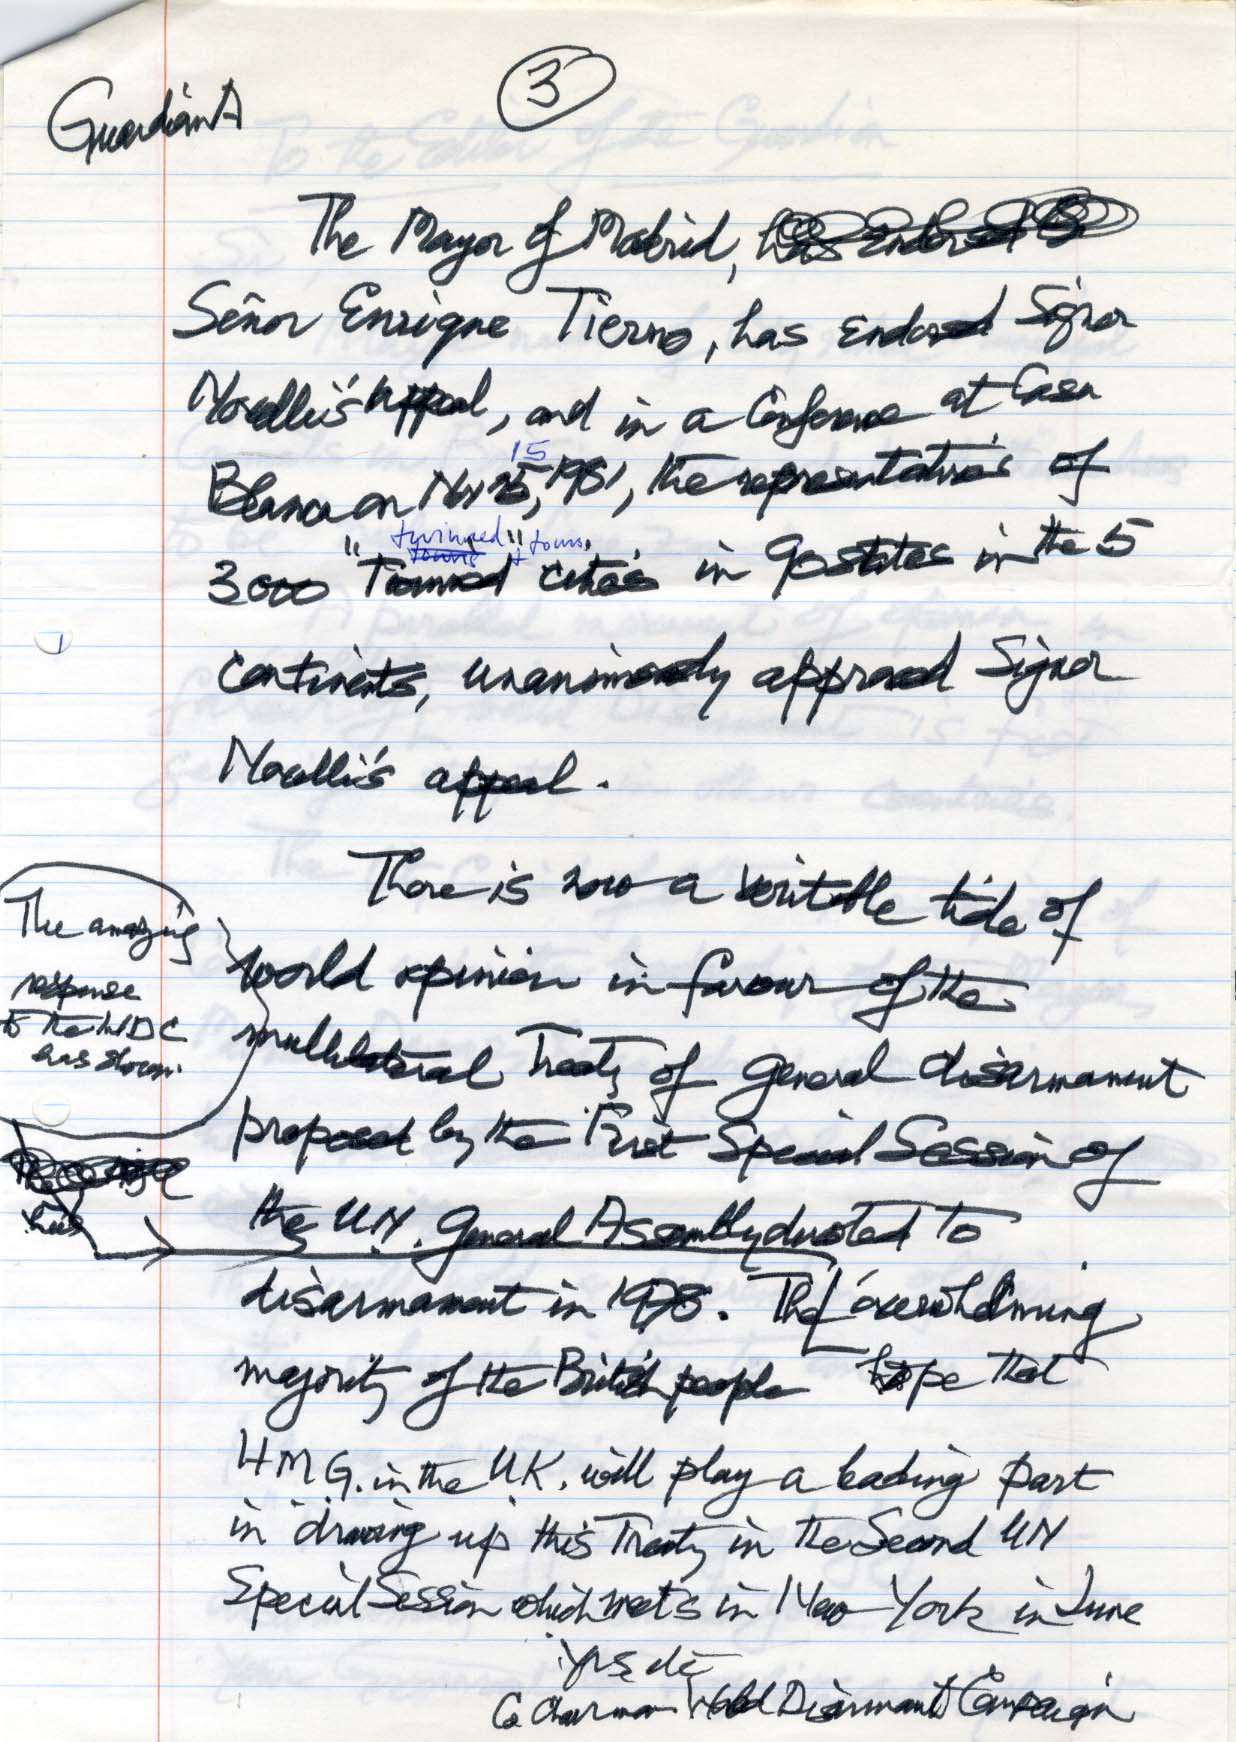 GuardianA
3
The Mayor of Madrid, has endorsed
Señor Enrique Tierno, has endorsed Signor
Novelli's appeal, and in a Conference at Casa
15
Blanca on Nov 25, 1981, the representatives of
twinned" towns
towns +
3000 "Twinned cities in 90 states in the 5
continents, unanimously approved Signor
Novelli's appeal.
There is now a veritable tide of
world opinion in favour of the
multilateral Treaty of general disarmament
proposed by the First Special Session of
the U.N. General Assembly devoted to
disarmament in 1978. The overwhelming
majority of the British people hope that
H.M.G. in the U.K. will play a leading part
in drawing up this Treaty in the Second UN
Special Session which meets in New York in June
Yrs etc
Co Chairman World Disarmament Campaign
The amazing
response
to the WDC
has shown.
has